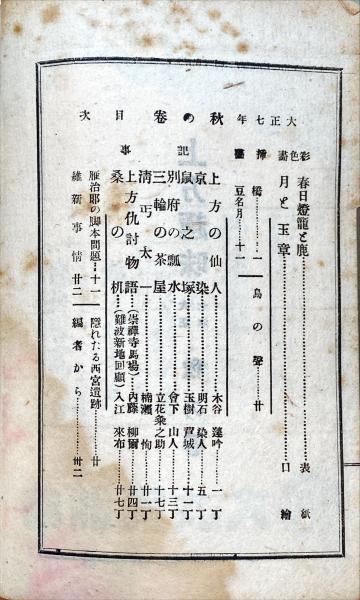 大正七年 秋の巻 目次
彩色畵
春日燈籠と鹿……表紙
月と玉章……口繪
挿畵
橋……一
鳥の聲……廿
豆名月……十一
記事
上方の仙人 木谷蓬吟 一丁
京染 明石染人 五丁
鼠之塚 玉樹芦城 十一丁
別府の瓢水 會下山人 十三丁
三輪の茶屋 立花薬之助 十七丁
淸丐太一 楠瀬恂 廿一丁
上方仇討物語(崇禪寺馬場) 內藤柳爾 廿四丁
桑の机(難波新地回顧) 入江來布 廿七丁
雁治郞の脚本問題…十一
隱れたる西宮遺跡……廿
維新事情 廿二
編者から……卅二